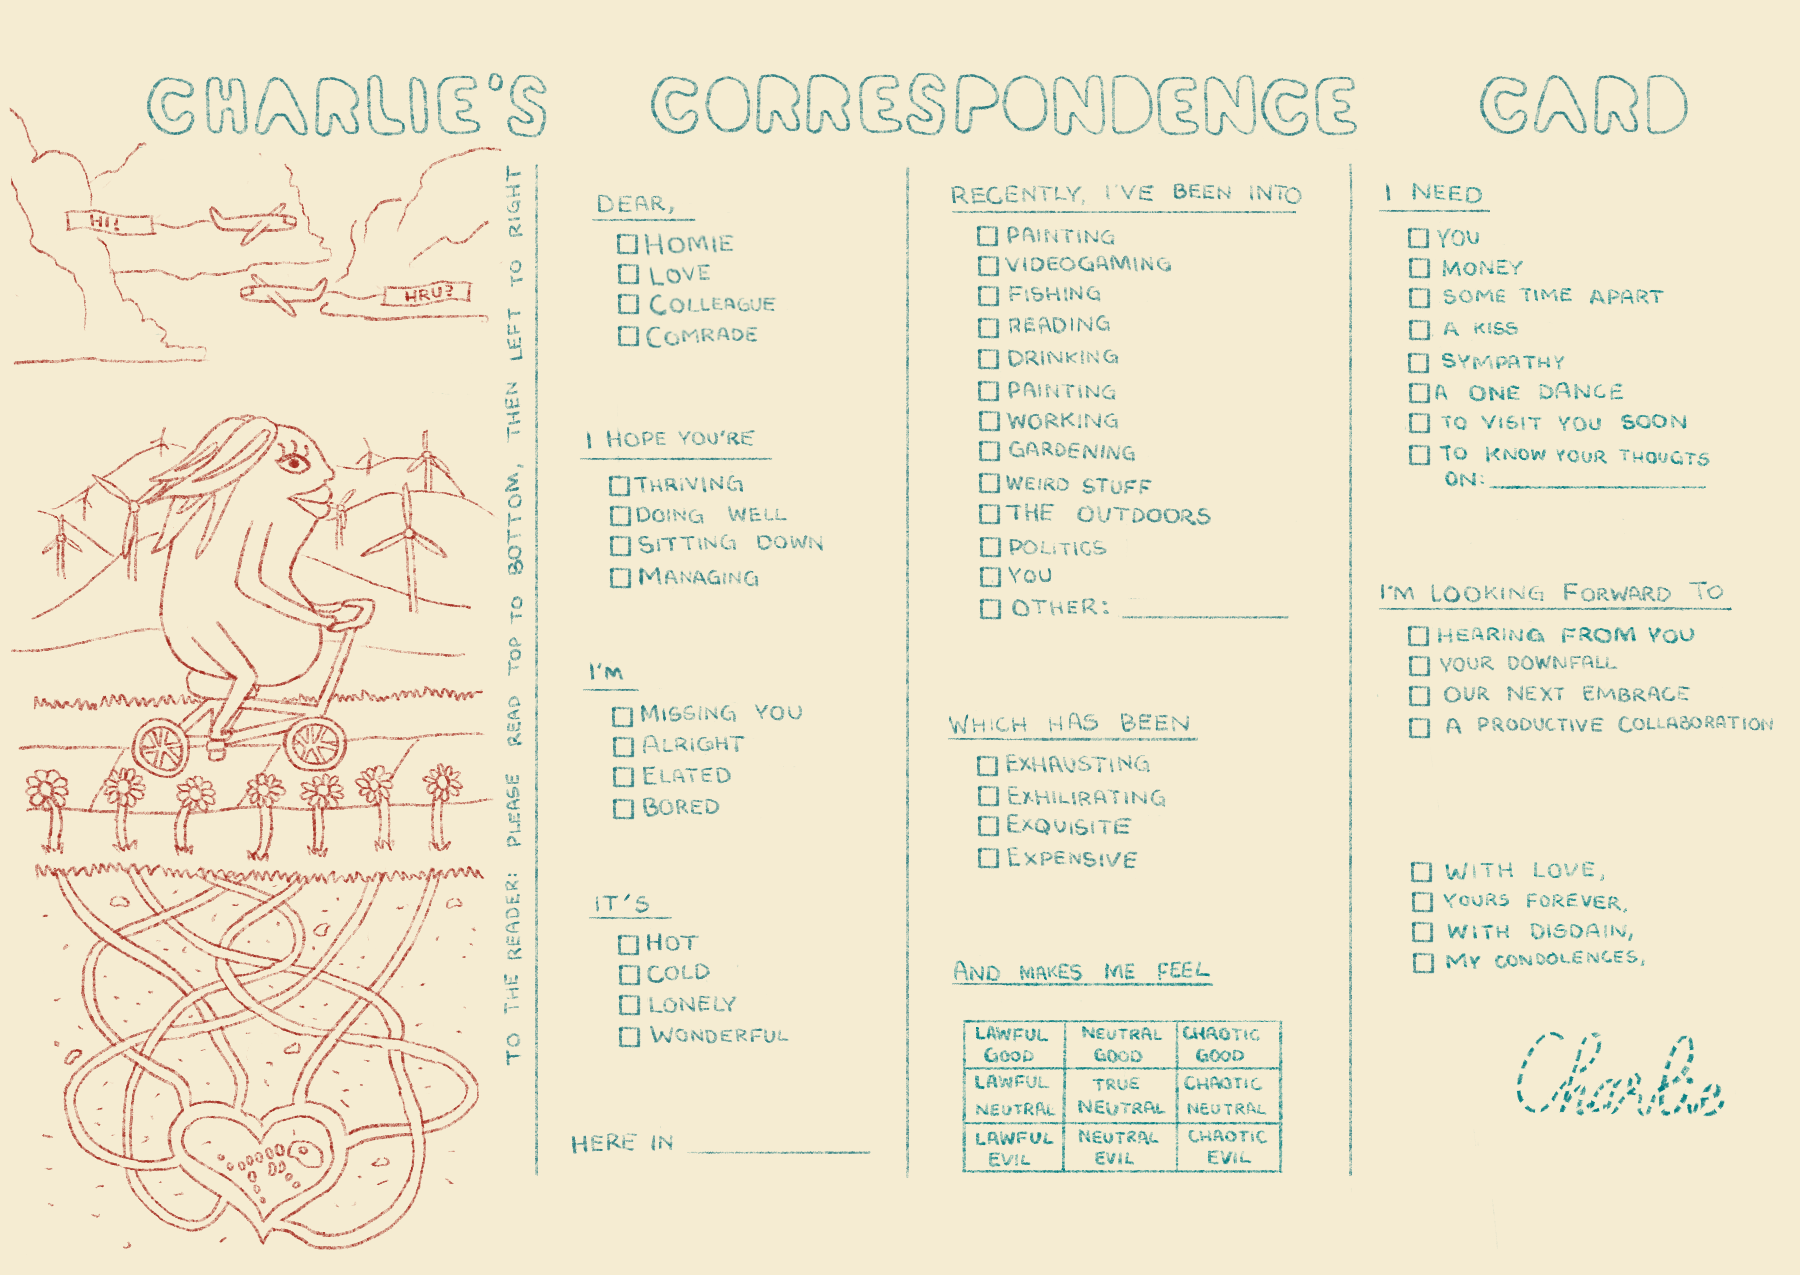 CHARLIE'S CORRESPONDENCE CARD
HI!
HRU?
TO THE READER: PLEASE READ TOP TO BOTTOM, THEN LEFT TO RIGHT
DEAR,
HOMIE
LOVE
COLLEAGUE
COMRADE
I HOPE YOU'RE
THRIVING
DOING WELL
SITTING DOWN
MANAGING
I'M
MISSING YOU
ALRIGHT
ELATED
BORED
IT'S
HOT
COLD
LONELY
WONDERFUL
HERE IN
RECENTLY, I'VE BEEN INTO
PAINTING
VIDEOGAMING
FISHING
READING
DRINKING
PAINTING
WORKING
GARDENING
WEIRD STUFF
THE OUTDOORS
POLITICS
YOU
OTHER:
WHICH HAS BEEN
EXHAUSTING
EXHILIRATING
EXQUISITE
EXPENSIVE
AND MAKES ME FEEL
LAWFUL GOOD
NEUTRAL GOOD
CHAOTIC GOOD
LAWFUL NEUTRAL
TRUE NEUTRAL
CHAOTIC NEUTRAL
LAWFUL EVIL
NEUTRAL EVIL
CHAOTIC EVIL
I NEED
YOU
MONEY
SOME TIME APART
A KISS
SYMPATHY
A ONE DANCE
TO VISIT YOU SOON
TO KNOW YOUR THOUGTS
ON:
I'M LOOKING FORWARD TO
HEARING FROM YOU
YOUR DOWNFALL
OUR NEXT EMBRACE
A PRODUCTIVE COLLABORATION
WITH LOVE,
YOURS FOREVER,
WITH DISDAIN,
MY CONDOLENCES,
Charlie